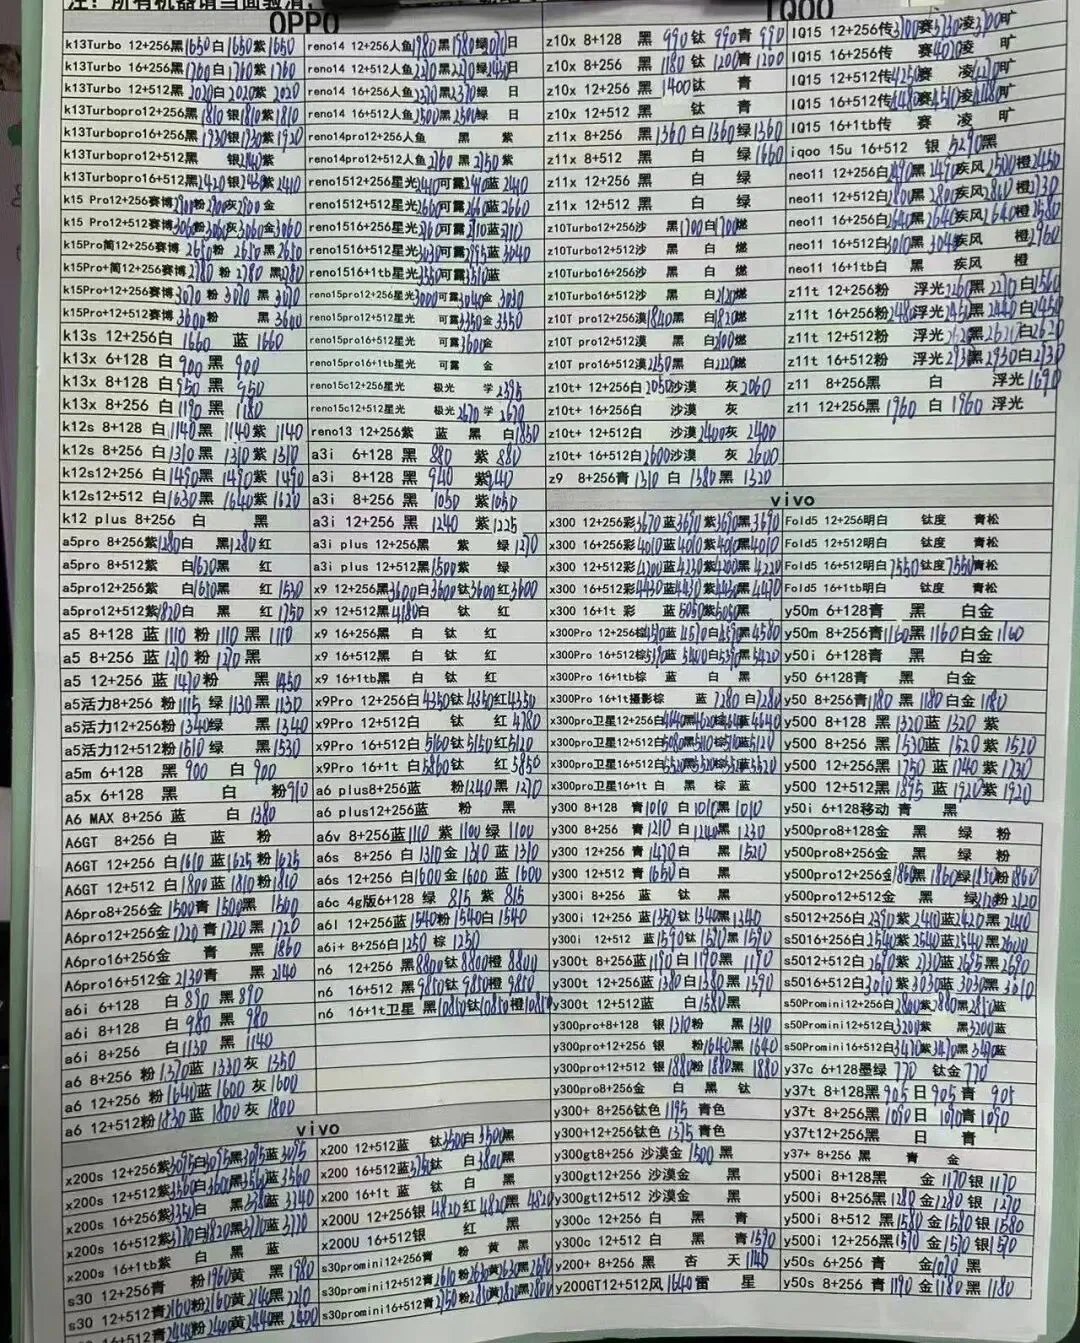 注：所有机器请当面验清，
OPPO
k13Turbo 12+256黑1650白1650紫1650
k13Turbo 16+256黑1760白1760紫1760
k13Turbo 12+512黑2020白2020紫2020
k13Turbopro12+256黑1810 银1810紫1810
k13Turbopro16+256黑1930银1930紫1920
k13Turbopro12+512黑 银2140紫
k13Turbopro16+512黑2420银2430紫2410
k15 Pro12+256赛博2900粉2900灰2900金
k15 Pro12+512赛博3060粉3060灰3060金3060
k15Pro简12+256赛博2650粉 2650黑2650
k15Pro+简12+256赛博2780 粉 2780 黑2780
k15Pro+12+256赛博3070 粉 3070 黑 3070
k15Pro+12+512赛博3600粉 黑 3600
k13s 12+256白 1660 蓝 1660
k13x 6+128 白 900 黑 900
k13x 8+128 白 950 黑 950
k13x 8+256 白 1190 黑 1180
k12s 8+128 白1140黑 1140紫 1140
k12s 8+256 白1310黑 1310紫 1310
k12s12+256 白1490黑 1490紫 1490
k12s12+512 白1630黑 1640紫 1620
k12 plus 8+256 白 黑
a5pro 8+256紫1280白 黑1280红
a5pro 8+512紫 白1620黑 红
a5pro12+256紫 白1610黑 红 1520
a5pro12+512紫1820白 黑 红 1750
a5 8+128 蓝 1110 粉 1110 黑 1110
a5 8+256 蓝 1270 粉 1270 黑
a5 12+256 蓝 1470 粉 黑 1450
a5活力8+256 粉 1115 绿 1130黑 1130
a5活力12+256粉 1340绿 黑 1340
a5活力12+512粉 1510 绿 黑 1530
a5m 6+128 黑 900 白 900
a5x 6+128 黑 白 粉910
A6 MAX 8+256 蓝 白 1380
A6GT 8+256 白 蓝 粉
A6GT 12+256 白1610 蓝1625 粉1625
A6GT 12+512 白1800蓝1810粉1810
A6pro8+256金 1500青 1500黑 1500
A6pro12+256金 1720 青 1720 黑 1720
A6pro16+256金 青 黑 1860
A6pro16+512金 2130青 黑 2140
a6i 6+128 白 890 黑 890
a6i 8+128 白 980 黑 980
a6i 8+256 白1130 黑 1140
a6 8+256 粉 1370蓝 1330灰 1350
a6 12+256 粉 1640蓝 1600 灰 1600
a6 12+512粉1830 蓝 1800 灰 1800
reno14 12+256人鱼1980黑1980绿 日
reno14 12+512人鱼2270黑2270绿2430日
reno14 16+256人鱼2370黑2370绿 日
reno14 16+512人鱼2500黑2500绿 日
reno14pro12+256人鱼 黑 紫
reno14pro12+512人鱼2760黑2750 紫
reno1512+256星光2440可露2410蓝 2440
reno1512+512星光2660可露2660蓝2660
reno1516+256星光2760可露2710蓝2710
reno1516+512星光3030可露2995蓝3040
reno1516+1tb星光3550可露3510蓝
reno15pro12+256星光3000可露3040金 3030
reno15pro12+512星光 可露3350金 3350
reno15pro16+512星光 可露3600金
reno15pro16+1tb星光 可露 金
reno15c12+256星光 极光 学 2395
reno15c12+512星光 极光2670学 2670
reno13 12+256紫 蓝 黑 白1850
a3i 6+128 黑 880 紫 880
a3i 8+128 黑 940 紫940
a3i 8+256 黑 1050 紫1050
a3i 12+256 黑 1240 紫1225
a3i plus 12+256黑 紫 绿 1270
a3i plus 12+512黑1500紫 绿
x9 12+256黑3600白3600钛3600红3600
x9 12+512黑4180白 钛 红
x9 16+256黑 白 钛 红
x9 16+512黑 白 钛 红
x9 16+1tb黑 白 钛 红
x9Pro 12+256白4350钛4350红4350
x9Pro 12+512白 钛 红4780
x9Pro 16+512白 5160钛 5150红5120
x9Pro 16+1t 白5860钛 红 5850
a6 plus8+256蓝 粉1240黑 1270
a6 plus12+256蓝 粉 黑
a6v 8+256蓝1110 紫 1100 绿 1100
a6s 8+256 白1310金 1310 蓝 1310
a6s 12+256 白1600金 1600 蓝 1600
a6c 4g版6+128 绿 815 紫 815
a6l 12+256蓝1540粉1540白 1540
a6i+ 8+256白1250 棕 1250
n6 12+256 黑8800钛8800橙 8800
n6 16+512 黑9850钛9850橙 9850
n6 16+1t卫星 黑10850钛10850橙10850
vivo
x200s 12+256紫3095白3095黑3095蓝3095
x200s 12+512紫3560白3600黑3560蓝 3560
x200s 16+256紫3350白 黑3380蓝 3340
x200s 16+512紫3770白1820黑3770蓝 3770
x200s 16+1tb紫 白 黑 蓝
s30 12+256青 粉1960黄 黑 1980
s30 12+512青2160粉2160黄2140黑 2210
16+512青2440粉2400黄2440黑 2400
x200 12+512蓝 钛3500白3500黑
x200 16+512蓝3750钛 白3800黑
x200 16+1t 蓝 钛 白 黑
x200U 12+256银 4820红 4820黑 4820
x200U 16+512银 红 黑
s30promini12+256青 粉 黄 黑
s30promini12+512青2610粉2630黄2630黑2640
s30promini16+512青2750粉2810黄2820黑2800
IQOO
z10x 8+128 黑 990 钛 990青 990
z10x 8+256 黑 1180 钛 1200青 1200
z10x 12+256 黑 1400钛 青
z10x 12+512 黑 钛 青
z11x 8+256 黑1360 白1360绿1360
z11x 8+512 黑 白 绿 1660
z11x 12+256 黑 白 绿
z11x 12+512 黑 白 绿
z10Turbo12+256沙 黑1700白1700燃
z10Turbo12+512沙 黑 白 燃
z10Turbo16+256沙 黑 白 燃
z10Turbo16+512沙 黑 白2120燃
z10T pro12+256漠1840黑 白1820燃
z10T pro12+512漠 黑 白2100燃
z10T pro16+512漠2250黑 白2220燃
z10t+ 12+256白2050沙漠 灰2060
z10t+ 16+256白 沙漠 灰
z10t+ 12+512白 沙漠2400灰 2400
z10t+ 16+512白2600沙漠 灰 2600
z9 8+256青 1310 白 1380黑 1320
IQ15 12+256传3700赛3730凌3700旷
IQ15 16+256传 赛4070凌 旷
IQ15 12+512传4250赛 凌4270旷
IQ15 16+512传4480赛4510凌4480旷
IQ15 16+1tb传 赛 凌 旷
iqoo 15u 16+512 银 5290黑
neo11 12+256白2490黑2490疾风2500橙2450
neo11 12+512白2800黑2800疾风2810橙2730
neo11 16+256白2640黑2640疾风2640橙2580
neo11 16+512白3010黑3040疾风 橙2960
neo11 16+1tb白 黑 疾风 橙
z11t 12+256粉 浮光2260黑2270白1560
z11t 16+256粉2480浮光2450黑2440白2450
z11t 12+512粉 浮光2620黑2620白2620
z11t 16+512粉 浮光2930黑2930白2930
z11 8+256黑 白 浮光1690
z11 12+256黑 1960 白 1960 浮光
vivo
x300 12+256彩3670蓝3690紫3690黑3690
x300 16+256彩4010蓝4010紫4010黑4010
x300 12+512彩4200蓝4230紫4200黑4220
x300 16+512彩4430蓝4430紫4430黑4470
x300 16+1t 彩 蓝5050紫5050黑
x300Pro 12+256棕4570蓝4570白4590黑4580
x300Pro 16+512棕5390蓝5400白5390黑5420
x300Pro 16+1tb棕 蓝 白 黑
x300Pro 16+1t摄影棕 蓝 7280 白7280
x300pro卫星12+256白4640黑4620棕4640蓝4640
x300pro卫星12+512白5080黑5110棕5110蓝5120
x300pro卫星16+512白5520黑5520棕5520蓝5520
x300pro卫星16+1t白 黑 棕 蓝
y300 8+128 青1010 白1010黑 1010
y300 8+256 青1210 白1240黑 1230
y300 12+256 青1470白 黑 1520
y300 12+512 青1650白 黑
y300i 8+256 蓝 钛 黑
y300i 12+256 蓝1350钛 1340黑1340
y300i 12+512 蓝1590钛 1570黑1590
y300t 8+256蓝1190白 1190黑 1190
y300t 12+256 蓝1380白 1380黑 1390
y300t 12+512蓝 白 1580黑
y300pro+8+128 银 1310粉 黑 1310
y300pro+12+256 银 粉1640黑 1640
y300pro+12+512 银1880粉1880黑 1880
y300pro8+256金 白 黑 钛
y300+ 8+256钛色 1195 青色
y300+12+256钛色 1375 青色
y300gt8+256 沙漠金 1500 黑
y300gt12+256 沙漠金 黑
y300gt12+512 沙漠金 黑
y300c 12+256 白 黑 青
y300c 12+512 白 黑 青1590
y200+ 8+256 黑 杏 天1140
y200GT12+512风1640雷 星
Fold5 12+256明白 钛度 青松
Fold5 12+512明白 钛度 青松
Fold5 16+512明白7550钛度7550青松
Fold5 16+1tb明白 钛度 青松
y50m 6+128青 黑 白金
y50m 8+256青1160黑1160白金1160
y50i 6+128青 黑 白金
y50 6+128青 黑 白金
y50 8+256青1180 黑 1180白金 1180
y500 8+128 黑1320蓝 1320 紫
y500 8+256 黑1530蓝 1520 紫 1520
y500 12+256黑1750 蓝1740 紫 1730
y500 12+512黑1895 蓝1920紫 1920
y50i 6+128移动 青 黑
y500pro8+128金 黑 绿 粉
y500pro8+256金 黑 绿 粉
y500pro12+256金1860黑1860绿1850粉1860
y500pro12+512金 黑 绿2120粉2120
s5012+256白2390紫2440蓝2420黑2440
s5016+256白2540紫2540蓝2540黑2600
s5012+512白2690紫2730蓝2695黑2690
s5016+512白3010紫3030蓝3030黑3010
s50Promini12+256白2800紫2880黑2850蓝
s50Promini12+512白3200紫 黑3200蓝
s50Promini16+512白3470紫3470黑3490蓝
y37c 6+128墨绿 770 钛金770
y37t 8+128黑905日905青 905
y37t 8+256黑1090日 1090青1090
y37t12+256黑 日 青
y37+ 8+256 黑 青 金
y500i 8+128黑 金1170银1170
y500i 8+256黑1280金1280 银 1270
y500i 8+512 黑1580金1580银 1580
y500i 12+256黑1570 金1570银1570
y50s 6+256 青 金1070 黑
y50s 8+256 青 1190 金1180黑 1180